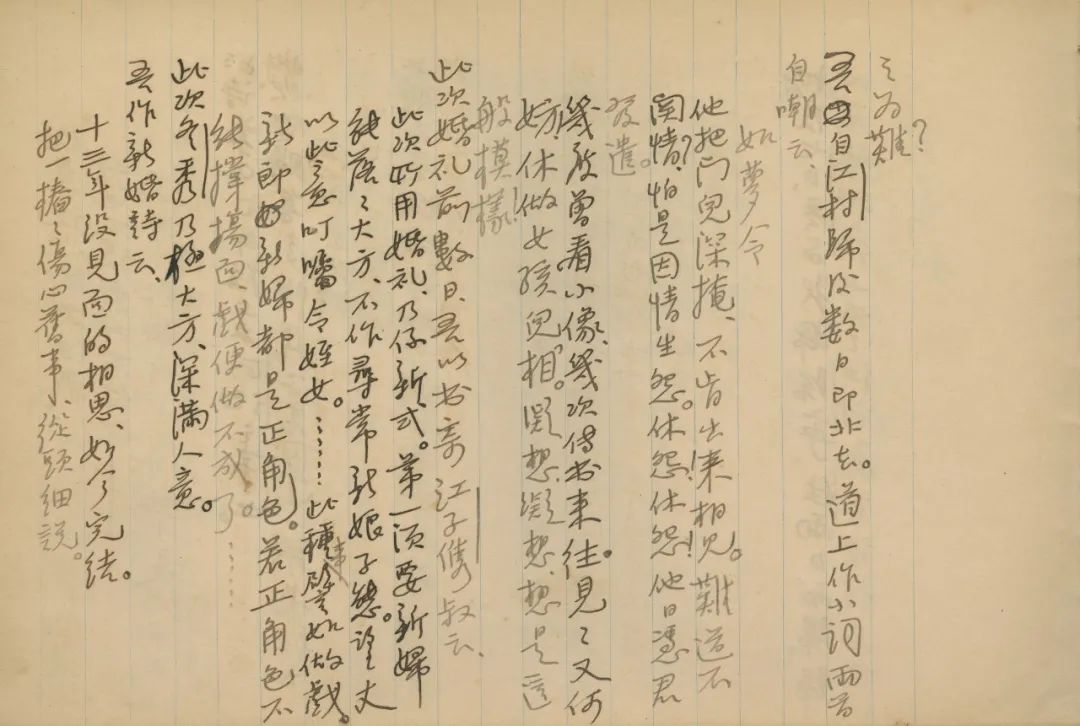 之为難？
吾自江村歸後數日即北去。道上作小詞兩首
自嘲云、
如夢令
他把门兒深掩、不肯出来相見。難道不
関情？怕是因情生怨。休怨！休怨！他日憑君
發遣。
幾次曾看小像、幾次傳书来往。見ミ又何
妨、休做女孩兒相。凝想、凝想、想是這
般模樣！
此次婚礼前數日、吾以书寄江子雋叔云、
此次所用婚礼、乃係新式。第一須要新婦
能落ミ大方、不作尋常新娘子態。望丈
以此意叮囑令姪女。……此種事譬如做戲。
新郎新婦都是正角色。若正角色不
能撑揚面、戲便做不成了。……
此次冬秀乃極大方、深滿人意。
吾作新婚詩云、
十三年沒見面的相思、如今完結。
把一樁ミ傷心舊事、從頭細説。